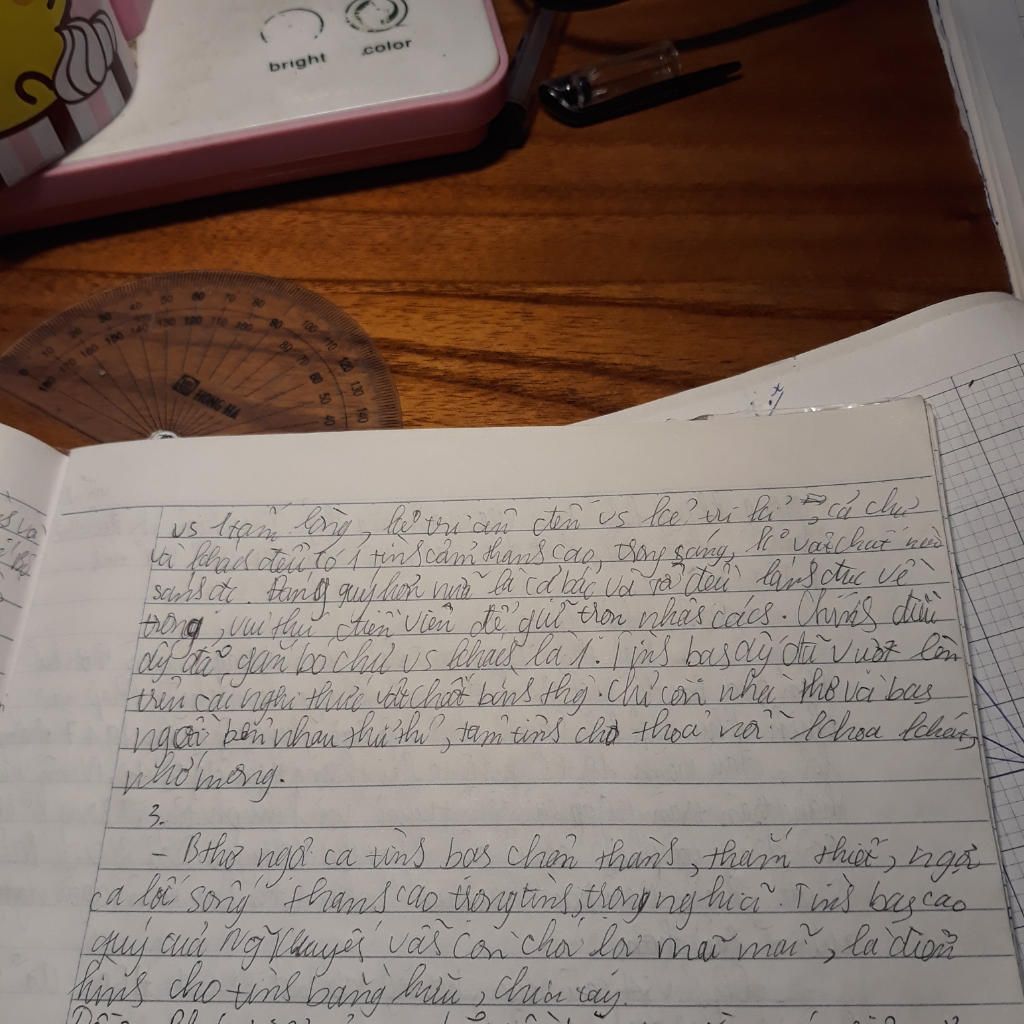 bright
color
HONG HA
vs 1 tấm lòng, kẻ tri âm đến vs kẻ tri kỉ, cả chủ
và khách đều có 1 tìns cảm thans cao, trong sáng, k vật chất nào
sáns đc. Đáng quý hơn nữa là cả bác và ta đều láns đục về
trong, vui thú điền viên để giữ tròn nhâs cács. Chíns điều
ấy đã gắn bó chủ vs khács là 1. Tìns bạs ấy đã vượt lên
trên cái nghi thức vật chất bìns thg. Chỉ còn nhà thơ và bạs
ngồi bên nhau thủ thỉ, tâm tìns cho thoả nỗi khao khát,
nhớ mong.
3.
- Bthơ ngợi ca tìns bạs chân thàns, thắm thiết, ngợi
ca lối sống thans cao trọng tìns, trọng nghĩa. Tìns bạs cao
quý của Ng Khuyến vẫs còn chói lọi mãi mãi, là điển
hìns cho tìns bằng hữu, chia tay.